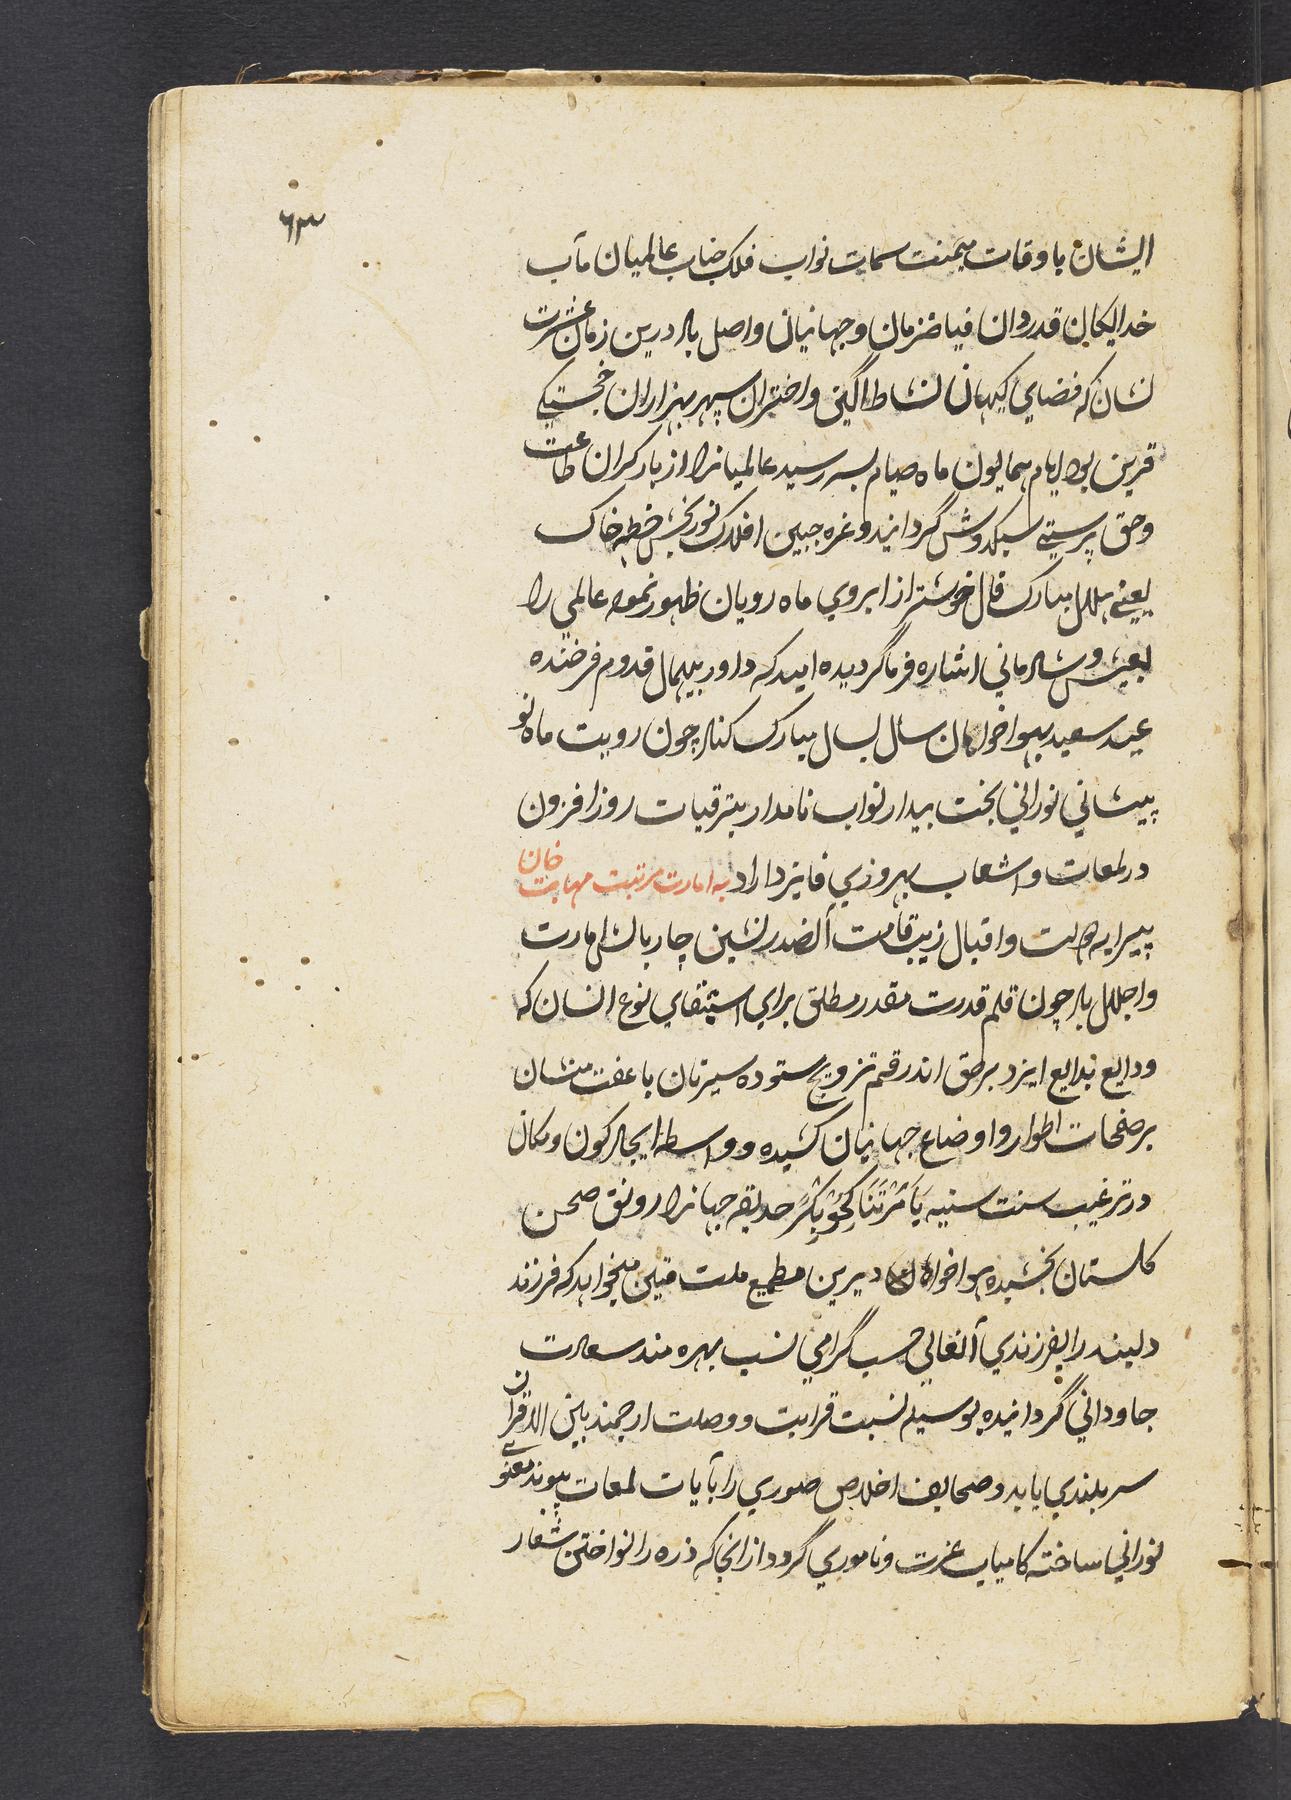 ۶۳
ایشان باوقات میمنت سمات نواب فلک جناب عالمیان مآب
خدایکان قدردان فیاض زمان و جهانیان واصل باد درین زمان عشرت
نشان که فضای کیهان نشاط آگین و اختران سپهر بهزاران خجستگی
قرین بود ایام همایون ماه صیام بسر رسید عالمیانرا از بار کران طاعت
و حق پرستی سبکدوش گردانید و غره جبین افلاک نوربخش خطه خاک
یعنی هلال مبارک فال خوشتر از ابروی ماه رویان ظهور نموده عالمی را
بعیش و شادمانی اشاره فرما گردیده امید که داور بیهمال قدوم فرخنده
عید سعید بهواخواهان سال بسال مبارک کناد چون رویت ماه نو
پیشانی نورانی بخت بیدار نواب نامدار بترقیات روزافزون
در لمعات و اشعاب بهروزی فایز داراد به امارت مرتبت مهابت خان
پیرایه دولت و اقبال زیب قامت آنصدرنشین چار بالش امارت
و اجلال باد چون قلم قدرت مقدر مطلق برای استیفای نوع انسان که
ودایع بدایع ایزد برحق اند رقم تزویج ستوده سیرتان با عفت منشان
بر صفحات اطوار و اوضاع جهانیان کشیده و واسطه ایجاد کون و مکان
در ترغیب سنت سنیه حدیقه جهانرا رونق صحن
کلستان بخشیده هواخواه دیرین مطیع ملت متین میخواهد که فرزند
دلبند را بفرزندی آنعالی حسب گرامی نسب بهره مند سعادت
جاودانی گردانیده بوسیله نسبت قرابت و وصلت ارجمند بین الاقران
سربلندی یابد و صحایف اخلاص صوری را بآیات لمعات پیوند معنوی
نورانی ساخته کامیاب عزت و ناموری گردد از انجا که ذره را نواختن شعار